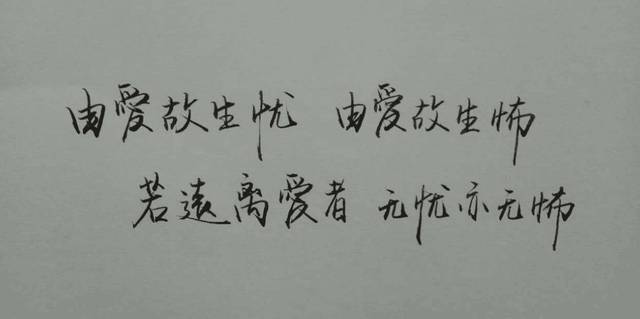 由愛故生忧 由愛故生怖
若遠离愛者 无忧亦无怖